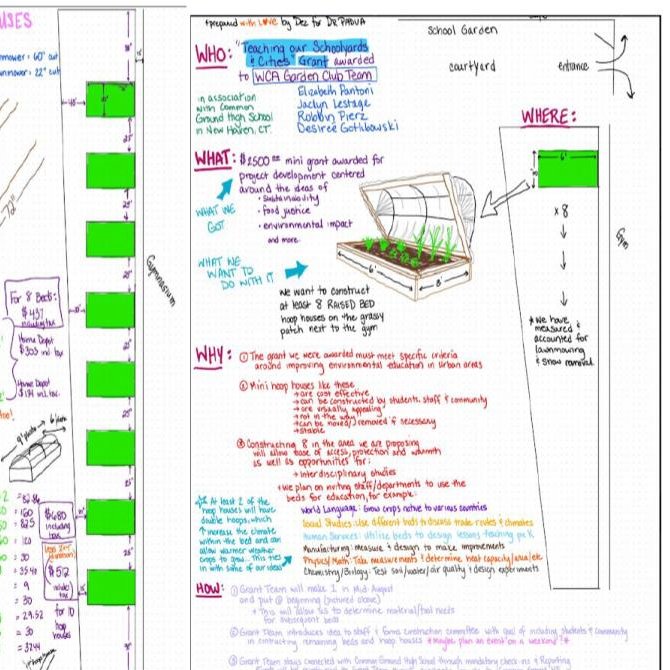 *prepared with LOVE by Dez for DR PADUA
WHO: "Teaching our Schoolyards
& Cities" Grant awarded
to WCA Garden Club Team
in association
with Common
Ground High School
in New Haven, CT.
Elizabeth Pantoni
Jaclyn Lestage
Robbin Pierz
Desiree Gotlibowski
WHAT: $2500 mini grant awarded for
project development centered
around the ideas of
• sustainability
• food justice
• environmental impact
and more.
WHAT WE
GOT
WHAT WE
WANT TO
DO WITH IT
we want to construct
at least 8 RAISED BED
hoop houses on the grassy
patch next to the gym
6'
School Garden
courtyard
entrance
WHERE:
6'
x 8
Gym
*We have
measured &
accounted for
lawnmowing
& snow removal
WHY: ① The grant we were awarded must meet specific criteria
around improving environmental education in urban areas
② Mini hoop houses like these
→ are cost effective
→ can be constructed by students, staff & community
→ are visually appealing
→ not in the way
→ can be moved/removed if necessary
→ stable
③ Constructing 8 in the area we are proposing
will allow ease of access, protection and warmth
as well as opportunities for:
interdisciplinary studies
we plan on inviting staff/departments to use the
beds for education, for example:
World Language: Grow crops native to various countries
Social Studies: Use different beds to discuss trade routes & climates
Human Services: Utilize beds to design lessons teaching pre K
Manufacturing: measure & design to make improvements
Physics/Math: Take measurements & determine heat capacity/area/etc
Chemistry/Biology: Test soil/water/air quality & design experiments
At least 2 of the
hoop houses will have
double hoops, which
↑ increase the climate
within the bed and can
allow warmer weather
crops to grow. This ties
in with some of our ideas
HOW: ① Grant Team will make 1 in Mid August
and put @ beginning (pictured above)
This will allow us to determine material/tool needs
for subsequent beds
② Grant Team introduces idea to staff & forms construction committee with goal of including students & community
in constructing remaining beds and hoop houses *Maybe plan an event on a weekend?*
③ Grant Team stays connected with Common Ground High School through mandatory check-ins & Reporting
USES
mower = 60" cut
22" cut
72"
Gymnasium
For 8 Beds:
$437
including tax
Home Depot
$303 incl tax
Home Depot
$134 incl tax
$680
including
tax
$512
for 10
hoop
houses